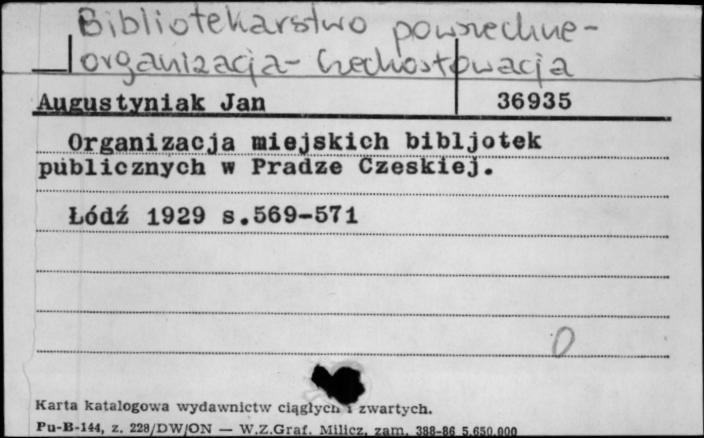 Bibliotekarstwo powszechne-
organizacja- Czechosłowacja
Augustyniak Jan 36935
Organizacja miejskich bibljotek
publicznych w Pradze Czeskiej.
Łódź 1929 s.569-571
0
Karta katalogowa wydawnictw ciągłych i zwartych.
Pu-B-144, z. 228/DW/ON — W.Z.Graf. Milicz, zam. 388-86 5.650.000